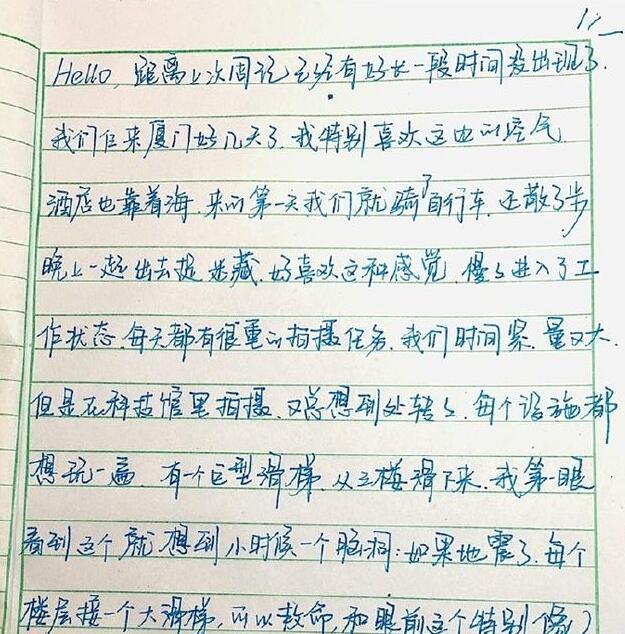 11
Hello, 距离上次周记已经有好长一段时间没出现了.
我们已来厦门好几天了.我特别喜欢这边的空气
酒店也靠着海.来的第一天我们就骑了自行车.还散了步
晚上一起出去捉迷藏.好喜欢这种感觉.慢慢进入了工
作状态.每天都有很重的拍摄任务.我们时间紧.量又大.
但是在科技馆里拍摄.又总想到处转转.每个设施都
想玩一遍.有一个巨型滑梯.从三楼滑下来.我第一眼
看到这个就想到小时候一个脑洞:如果地震了.每个
楼层接一个大滑梯,可以救命,和眼前这个特别像()